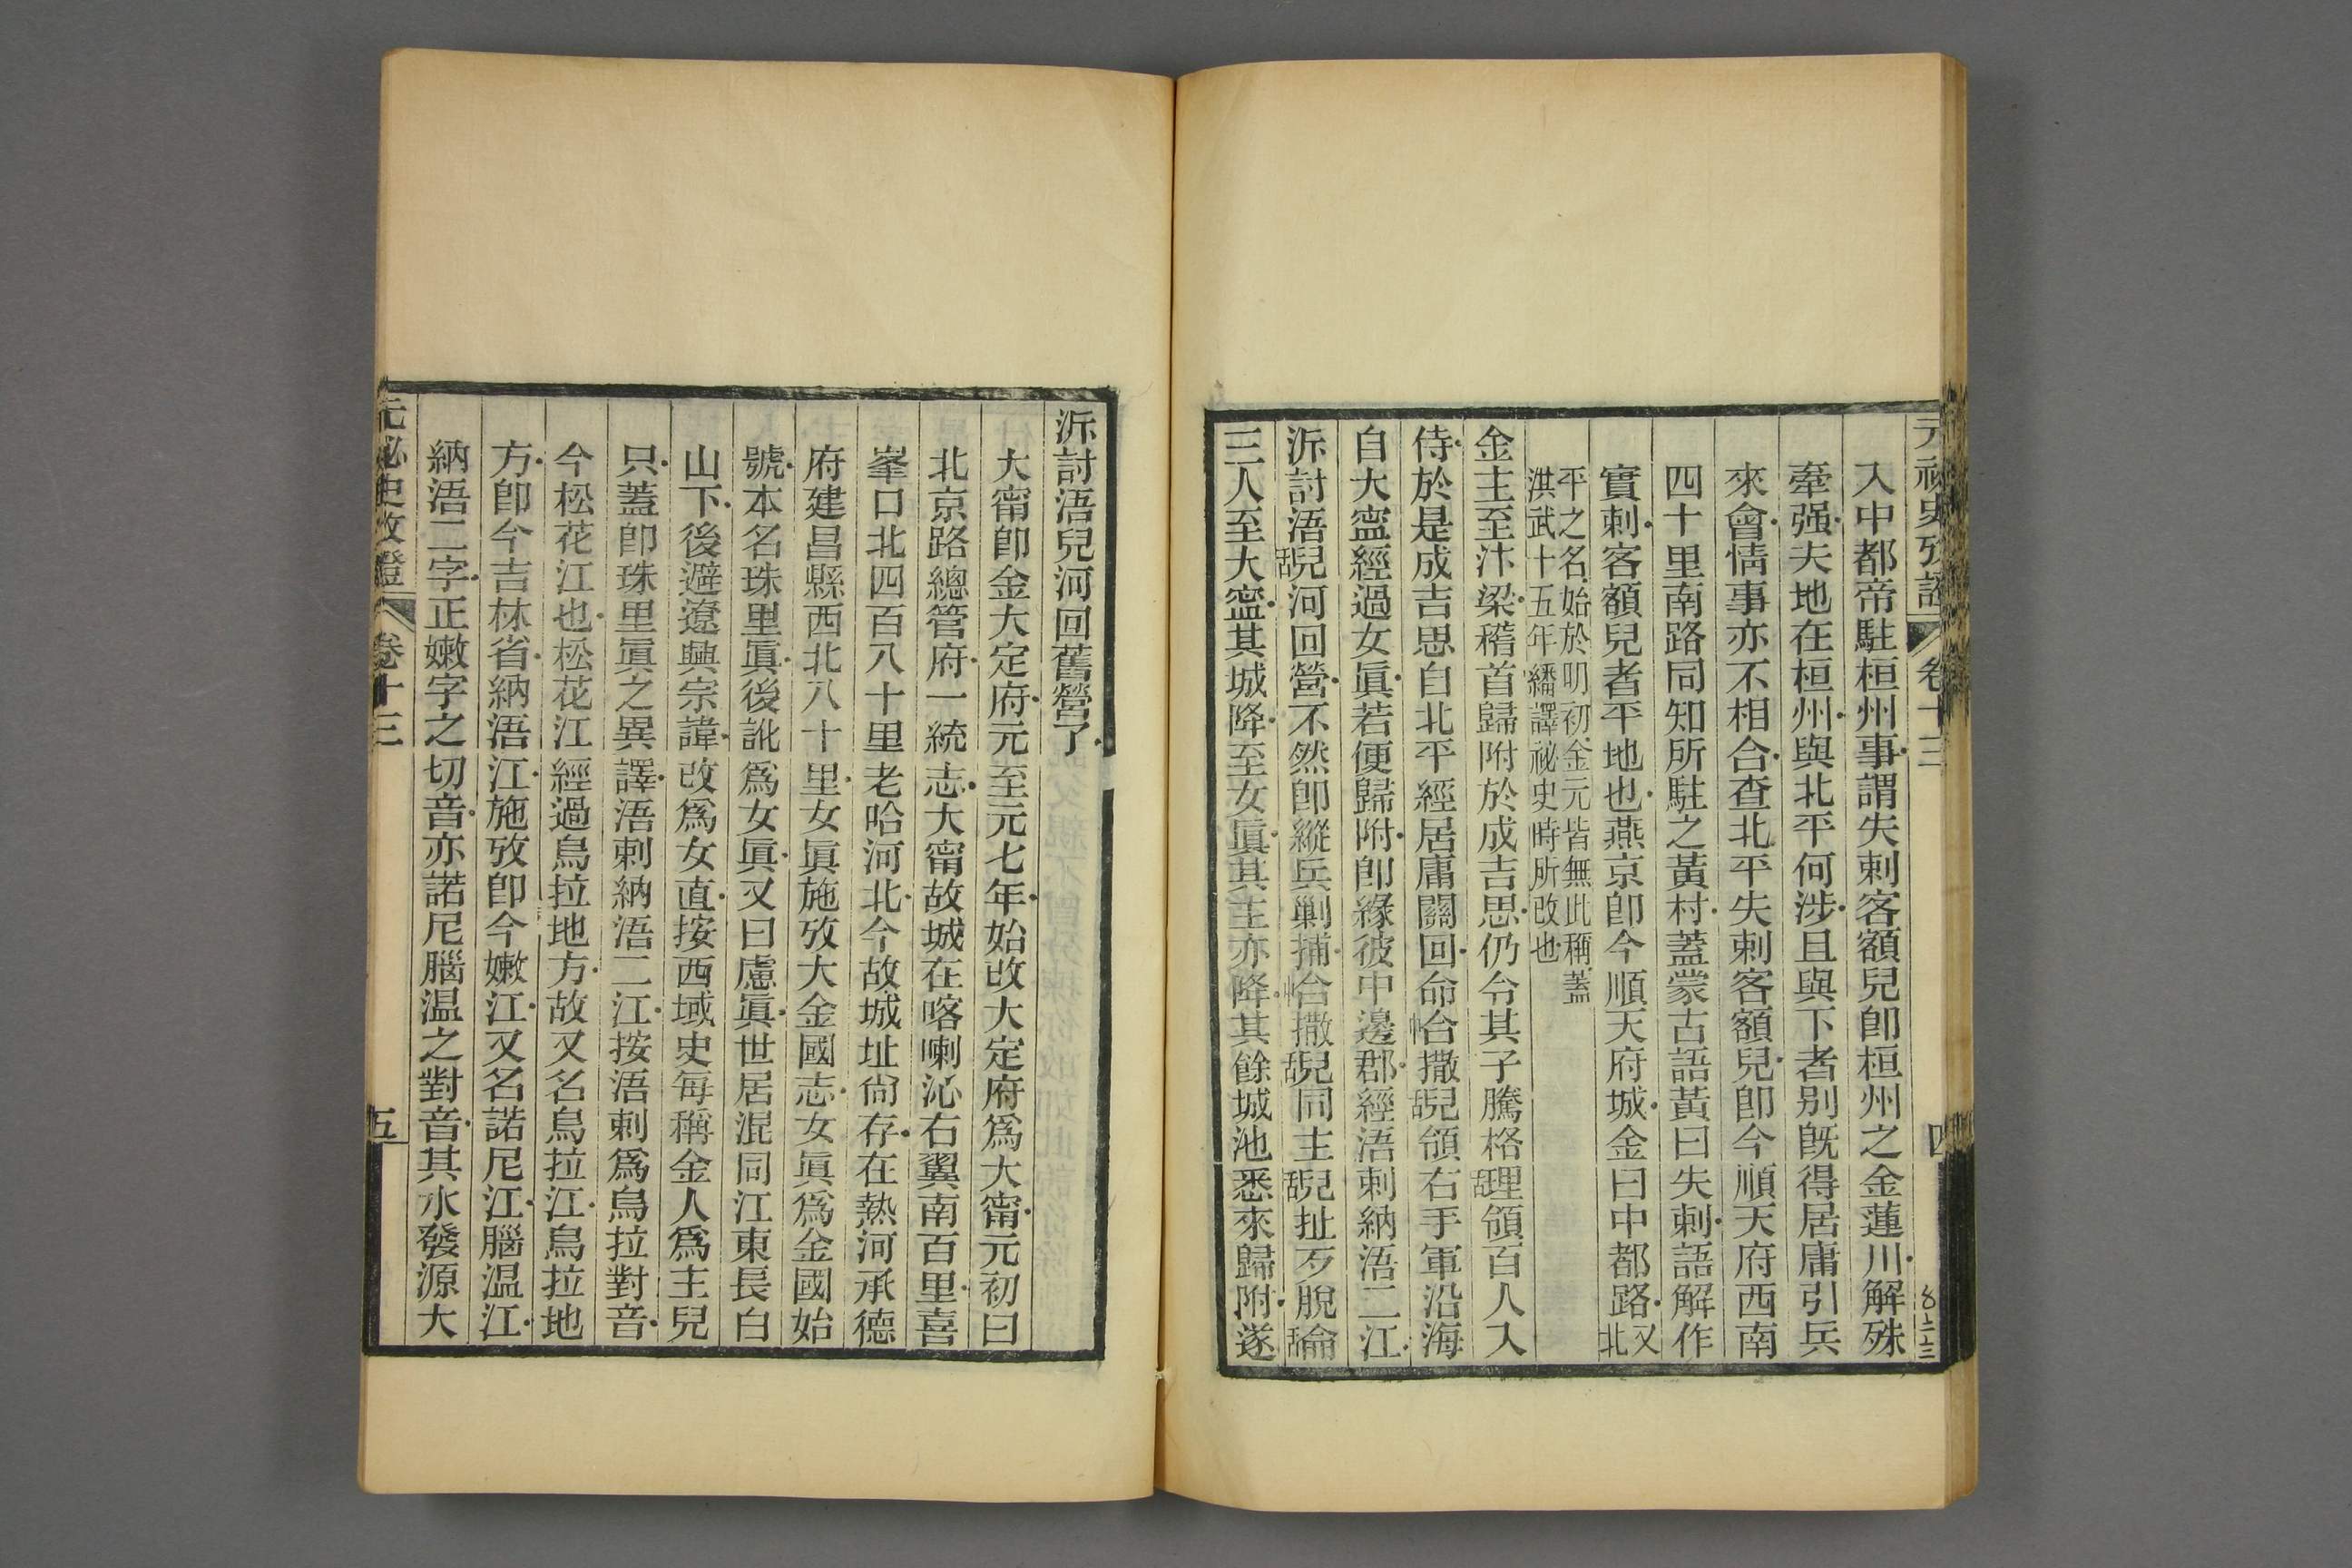 元祕史攷證 卷十三 四
入中都帝駐桓州事謂失剌客額兒卽桓州之金蓮川解殊
牽强夫地在桓州與北平何涉且與下者別旣得居庸引兵
來會情事亦不相合查北平失剌客額兒卽今順天府西南
四十里南路同知所駐之黃村蓋蒙古語黃曰失剌語解作
實剌客額兒者平地也燕京卽今順天府城金曰中都路又北
平之名始於明初金元皆無此稱蓋
洪武十五年繙譯祕史時所改也
金主至汴梁稽首歸附於成吉思仍令其子騰格舌理領百人入
侍於是成吉思自北平經居庸關回命中合撒舌兒領右手軍沿海
自大寍經過女眞若便歸附卽緣彼中邊郡經浯剌納浯二江
泝討浯舌兒河回營不然卽縱兵剿捕中合撒舌兒同主舌兒扯歹脫舌侖
三人至大寍其城降至女眞其主亦降其餘城池悉來歸附遂
泝討浯兒河回舊營了
大甯卽金大定府元至元七年始改大定府爲大甯元初曰
北京路總管府一統志大甯故城在喀喇沁右翼南百里喜
峯口北四百八十里老哈河北今故城址尙存在熱河承德
府建昌縣西北八十里女眞施攷大金國志女眞爲金國始
號本名珠里眞後訛爲女眞又曰慮眞世居混同江東長白
山下後避遼興宗諱改爲女直按西域史每稱金人爲主兒
只蓋卽珠里眞之異譯浯剌納浯二江按浯剌爲烏拉對音
今松花江也松花江經過烏拉地方故又名烏拉江烏拉地
方卽今吉林省納浯江施攷卽今嫩江又名諾尼江腦溫江
納浯二字正嫩字之切音亦諾尼腦溫之對音其水發源大
元祕史攷證 卷十三 五